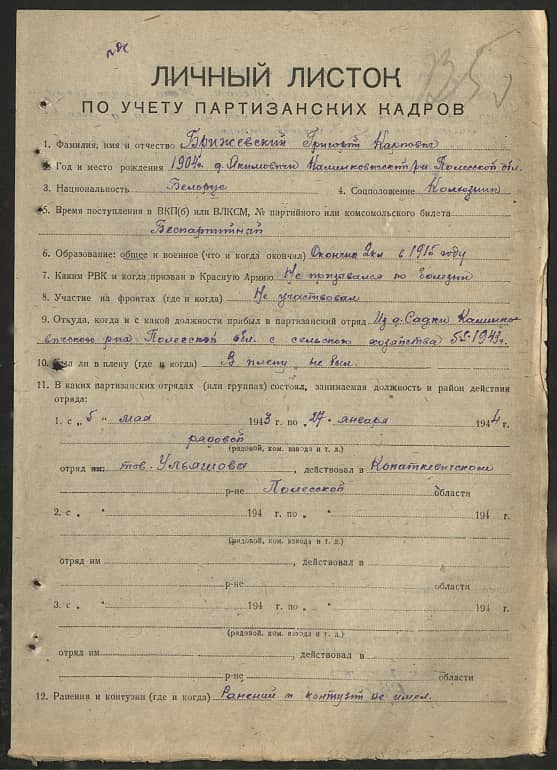 ЛИЧНЫЙ ЛИСТОК
ПО УЧЕТУ ПАРТИЗАНСКИХ КАДРОВ
1. Фамилия, имя и отчество Брижевский Григорий Карпович
2. Год и место рождения 1904г. д. Якимовичи Калинковичский р-н Полесской обл.
3. Национальность Беларус 4. Соцположение Колхозник
5. Время поступления в ВКП(б) или ВЛКСМ, № партийного или комсомольского билета
Беспартийный
6. Образование: общее и военное (что и когда окончил) Окончил 2кл в 1915 году
7. Каким РВК и когда призван в Красную Армию Не призывался по болезни
8. Участие на фронтах (где и когда) Не участвовал
9. Откуда, когда и с какой должности прибыл в партизанский отряд Из д. Садки Калинко-
вичского р-на Полесской обл. с сельского хозяйства 5/V-1943г.
10. Был ли в плену (где и когда) В плену не был.
11. В каких партизанских отрядах (или группах) состоял, занимаемая должность и район действия
отряда:
1. с „ 5 " мая 1943 г. по „ 27 " января 1944 г.
рядовой
(рядовой, ком. взвода и т. д.)
отряд им. тов. Ульяшова, действовал в Копаткевичском
р-не Полесской области
2. с „ " 194 г. по „ " 194 г.
(рядовой, ком. взвода и т. д.)
отряд им , действовал в
р-не области
3. с „ " 194 г. по „ " 194 г.
(рядовой, ком. взвода и т. д.)
отряд им , действовал в
р-не области
12. Ранения и контузии (где и когда) Ранений и контузий не имел.